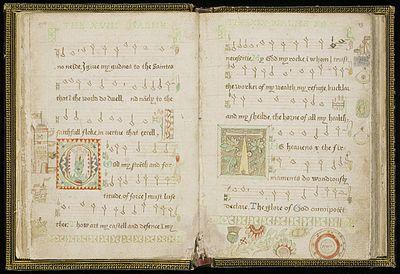 no neide, I give my gudnes to the Saintes
that I the world do dwell, nd nicly to the
faithfull floke, in vertue that excell.
O God my streth and for
titude of force I must luse
the: Thow art my castell and defence I my
necessitie. My God my rocke i whom I trust,
the worker of my wealth, my refuge, buckler
and my sheilde, the horne of all my health,
THe heavens & the fir
mamente do wondrously
declare, The glore of God omnipotet